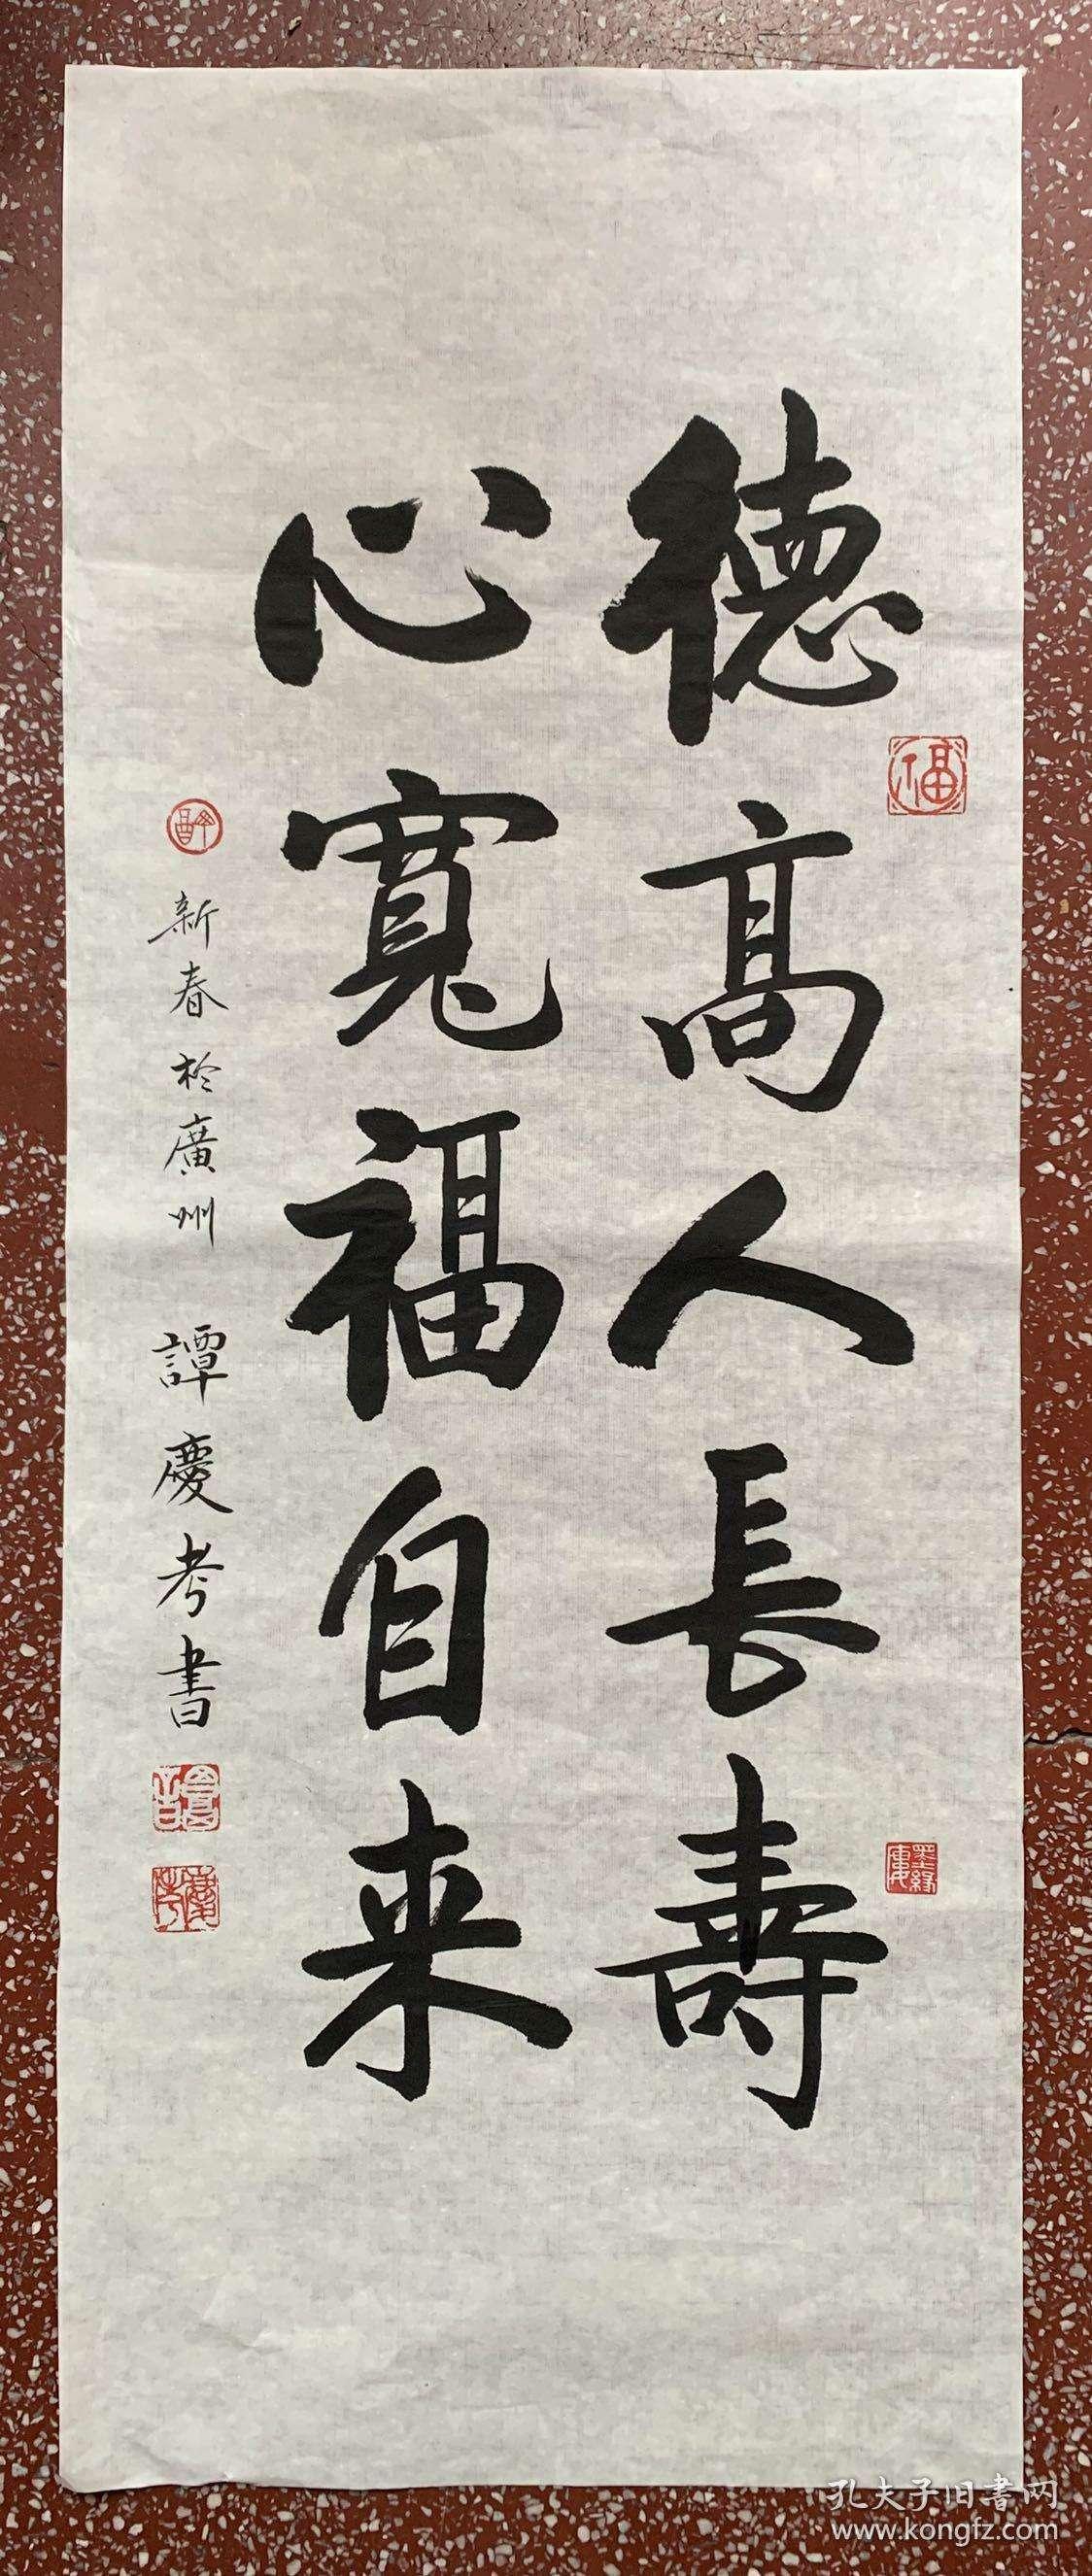 德高人長壽
心寬福自来
新春於廣州 譚慶考書
福
孔夫子旧書网
www.kongfz.com